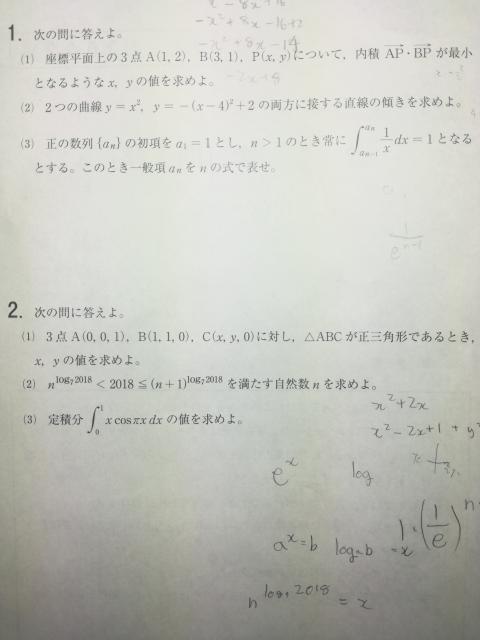 x − 8x + 16
−x² + 8x − 16 + 2
−x² + 8x − 14
−2x + 8
1. 次の問に答えよ。
(1) 座標平面上の3点 A(1, 2), B(3, 1), P(x, y)について, 内積 AP・BP が最小
となるような x, y の値を求めよ。
(2) 2つの曲線 y = x², y = −(x−4)²+2 の両方に接する直線の傾きを求めよ。
(3) 正の数列 {aₙ} の初項を a₁ = 1 とし, n > 1 のとき常に ∫_{aₙ₋₁}^{aₙ} 1/x dx = 1 となる
とする。このとき一般項 aₙ を n の式で表せ。
1/e^{n−1}
2. 次の問に答えよ。
(1) 3点 A(0, 0, 1), B(1, 1, 0), C(x, y, 0)に対し, △ABC が正三角形であるとき,
x, y の値を求めよ。
(2) n^{log₇2018} < 2018 ≦ (n+1)^{log₇2018} を満たす自然数 n を求めよ。
(3) 定積分 ∫₀¹ x cos πx dx の値を求めよ。
x² + 2x
x² − 2x + 1 + y²
eˣ log
(1/e)ⁿ
aˣ = b logₐb = x
n^{log₇2018} = x